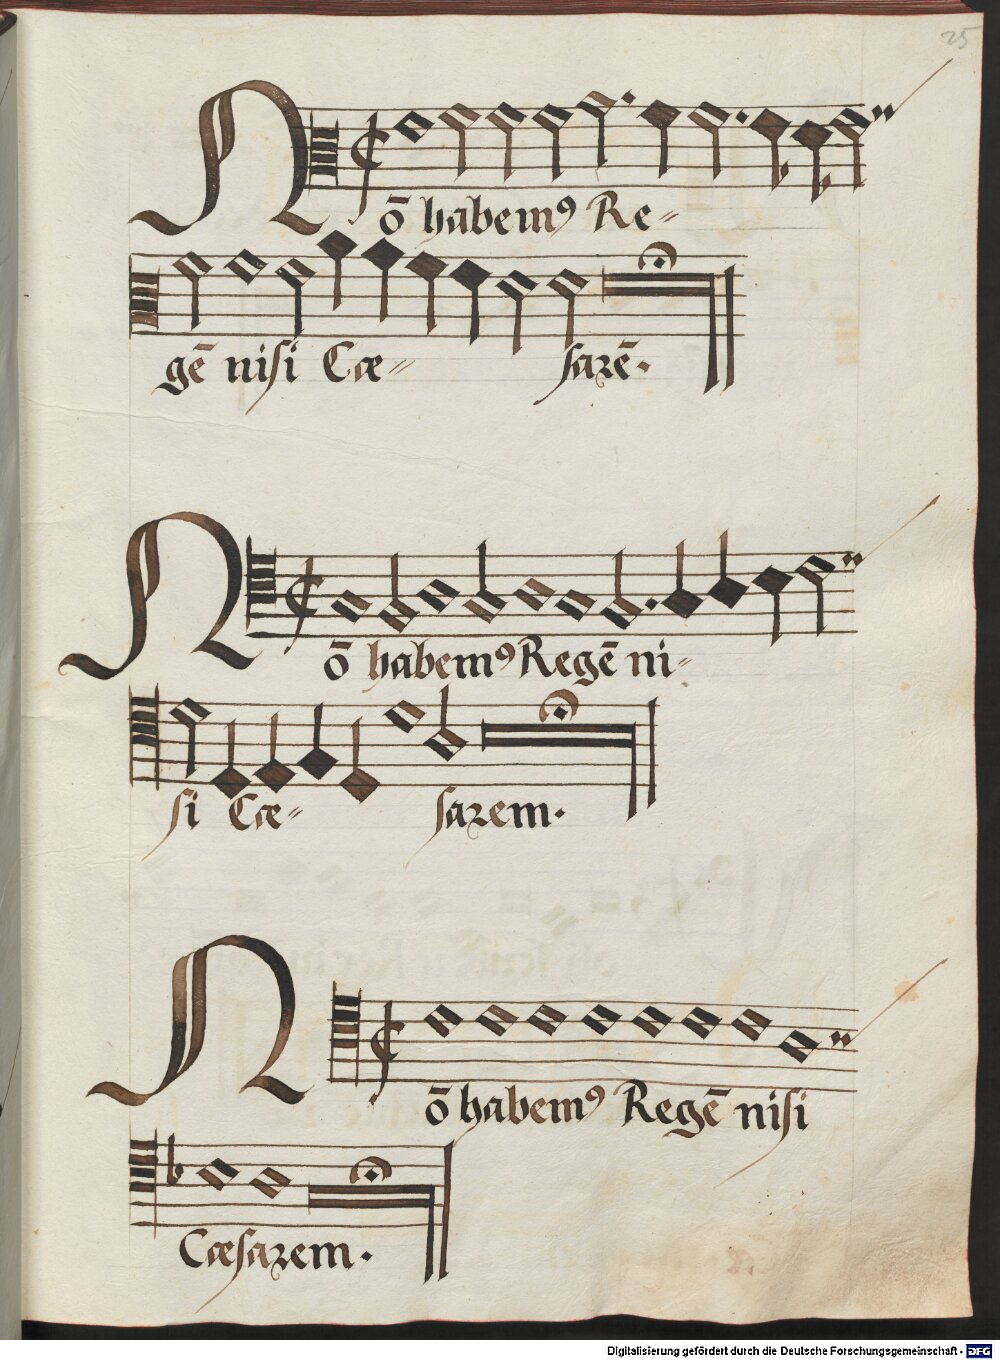 25
Nō habemꝰ Re⸗
gē niſi Cæ⸗ ſarē.
Nō habemꝰ Regē ni⸗
ſi Cæ⸗ ſarem.
Nō habemꝰ Regē niſi
Cæſarem.
Digitalisierung gefördert durch die Deutsche Forschungsgemeinschaft - DFG